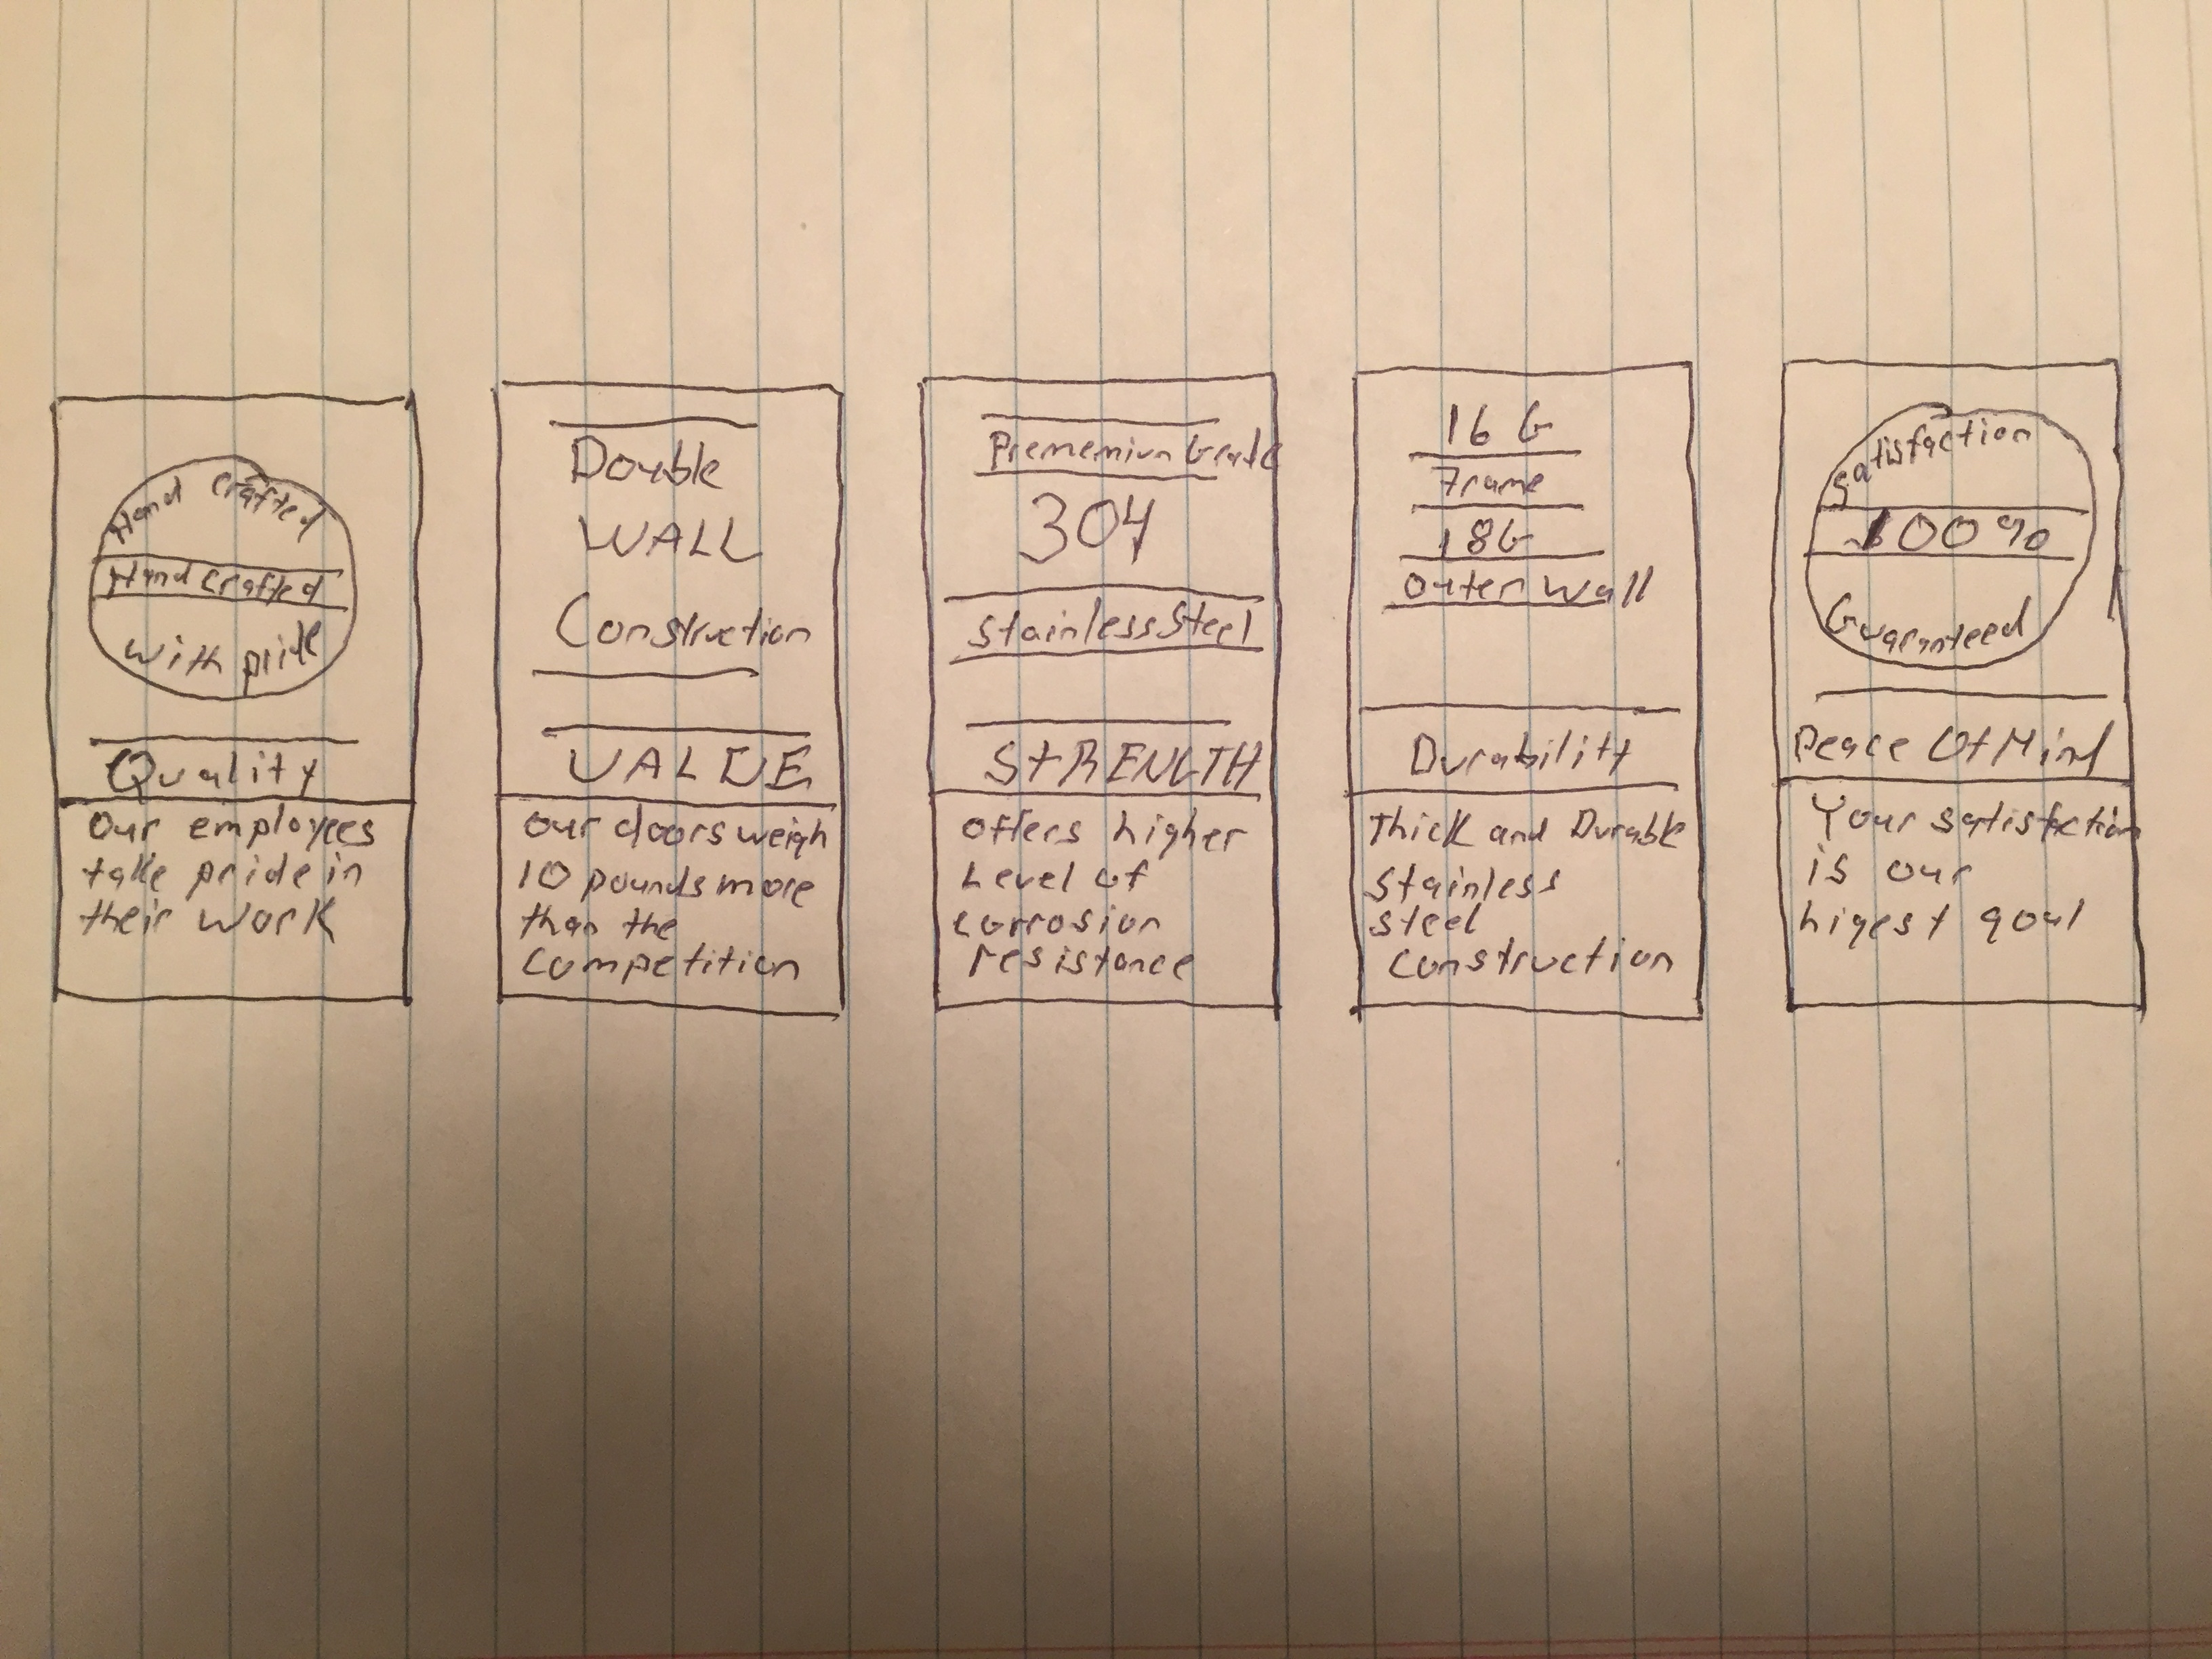 Hand Crafted
Hand Crafted
with pride
Quality
Our employees
take pride in
their work
Double
WALL
Construction
VALUE
Our doors weigh
10 pounds more
than the
competition
Prememium Grade
304
Stainless Steel
STRENGTH
Offers higher
Level of
corrosion
resistance
16 G
Frame
18G
Outer Wall
Durability
Thick and Durable
Stainless
Steel
Construction
Satisfaction
100%
Guaranteed
Peace Of Mind
Your satisfaction
is our
higest goal